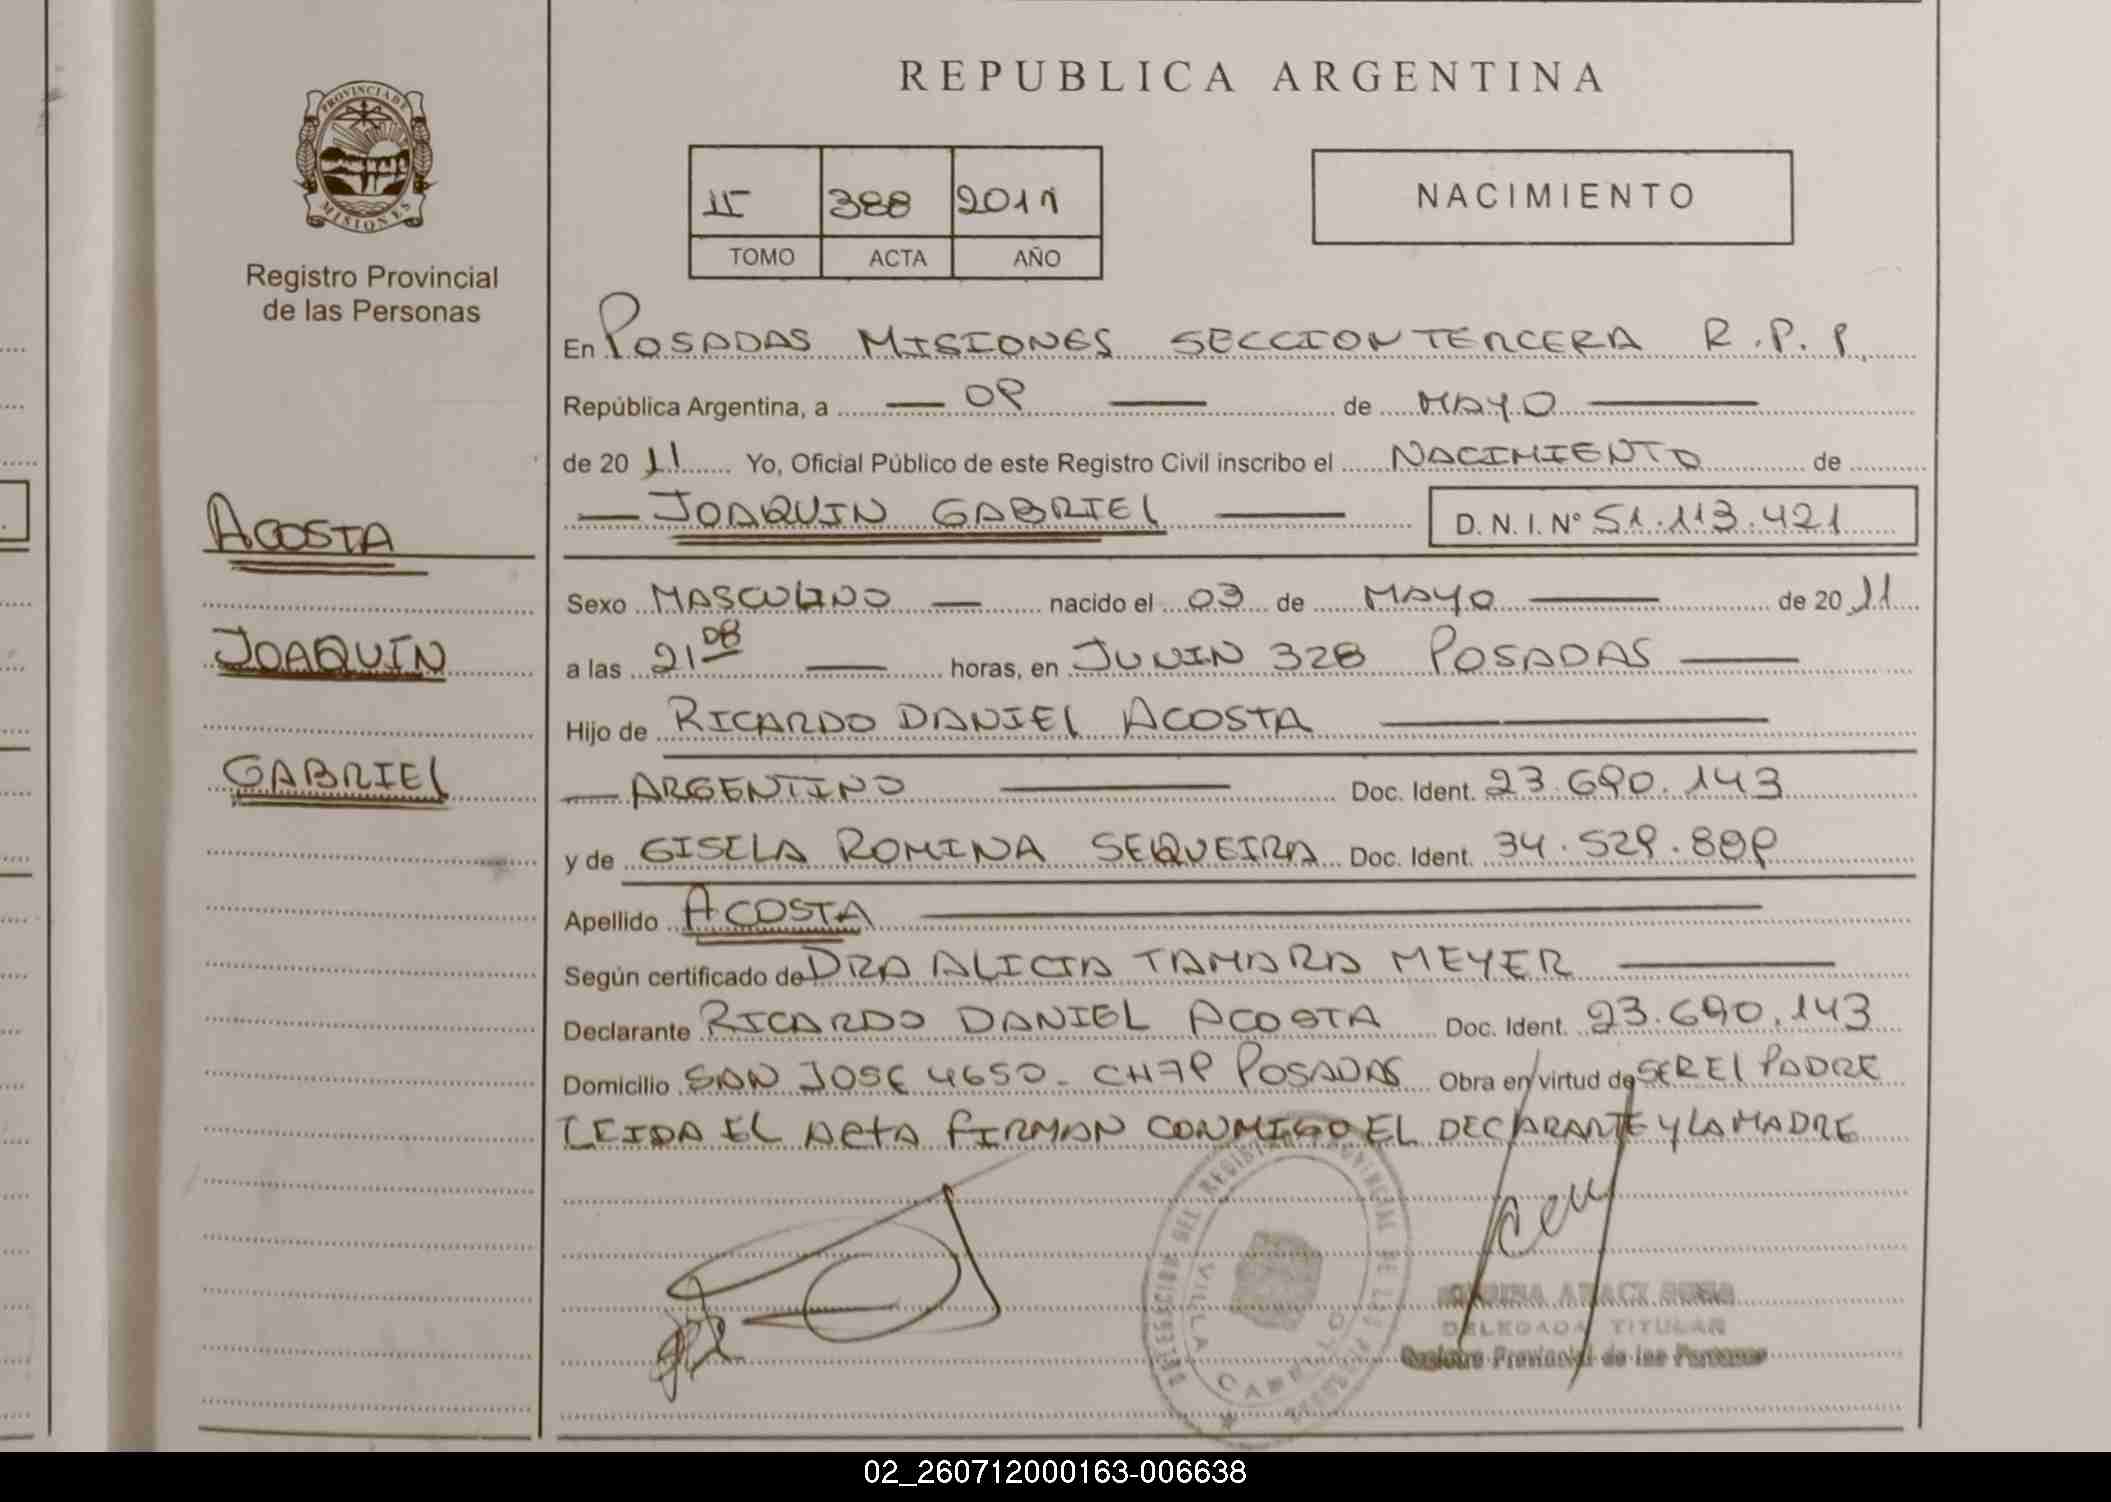 REPUBLICA ARGENTINA
PROVINCIA DE MISIONES
Registro Provincial
de las Personas
II 388 2011
TOMO ACTA AÑO
NACIMIENTO
En POSADAS MISIONES SECCION TERCERA R.P.P.
República Argentina, a 09 de MAYO
de 2011 Yo, Oficial Público de este Registro Civil inscribo el NACIMIENTO de
JOAQUIN GABRIEL D.N.I. N° 51.113.421
ACOSTA
JOAQUIN
GABRIEL
Sexo MASCULINO nacido el 03 de MAYO de 2011
a las 21 08 horas, en JUNIN 328 POSADAS
Hijo de RICARDO DANIEL ACOSTA
ARGENTINO Doc. Ident. 23.690.143
y de GISELA ROMINA SEQUEIRA Doc. Ident. 34.529.899
Apellido ACOSTA
Según certificado de DRA ALICIA TAMARA MEYER
Declarante RICARDO DANIEL ACOSTA Doc. Ident. 23.690.143
Domicilio SAN JOSE 4650 - CH79 POSADAS Obra en virtud de SER EL PADRE
LEIDA EL ACTA FIRMAN CONMIGO EL DECLARANTE Y LA MADRE
DEL REGISTRO PROVINCIAL DE LAS PERSONAS
VILLA CABELLO
DELEGADA TITULAR
Registro Provincial de las Personas
02_260712000163-006638